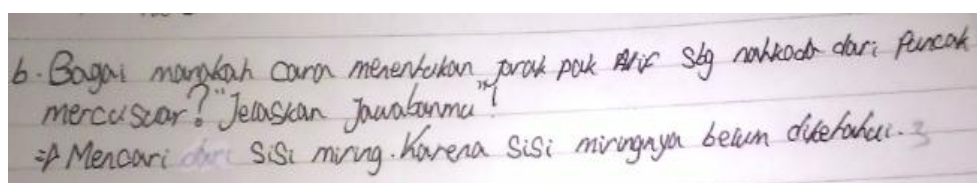 6. Bagai manakah cara menentukan jarak pak Arif sbg nahkoda dari puncak
mercusuar? "Jelaskan Jawabanmu"!
⇒ Mencari dari sisi miring. Karena sisi miringnya belum diketahui. 3